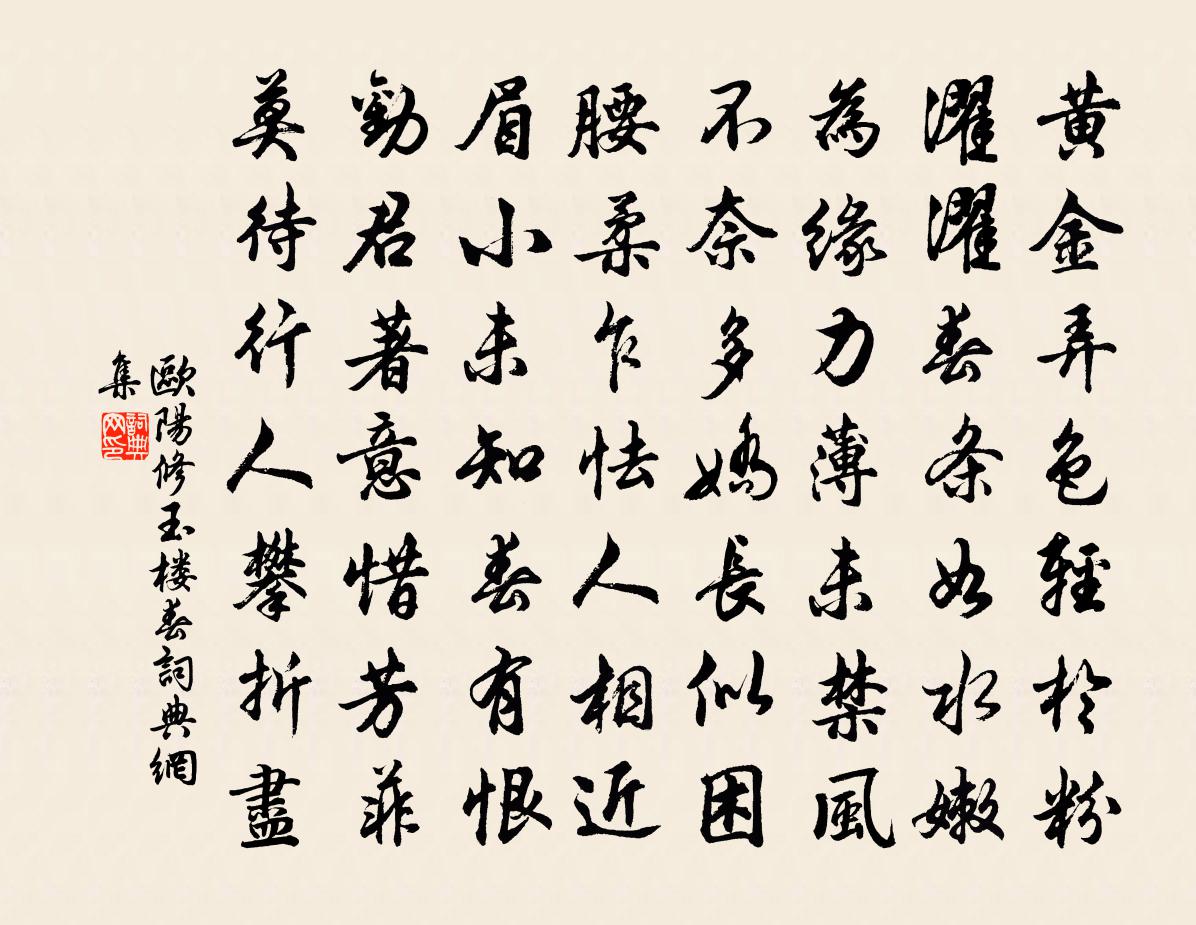 黄金弄色輕於粉
濯濯春条如水嫩
為緣力薄未禁風
不奈多嬌長似困
腰柔乍怯人相近
眉小未知春有恨
勸君著意惜芳菲
莫待行人攀折盡
歐陽修玉楼春詞典網
集
詞典
网印